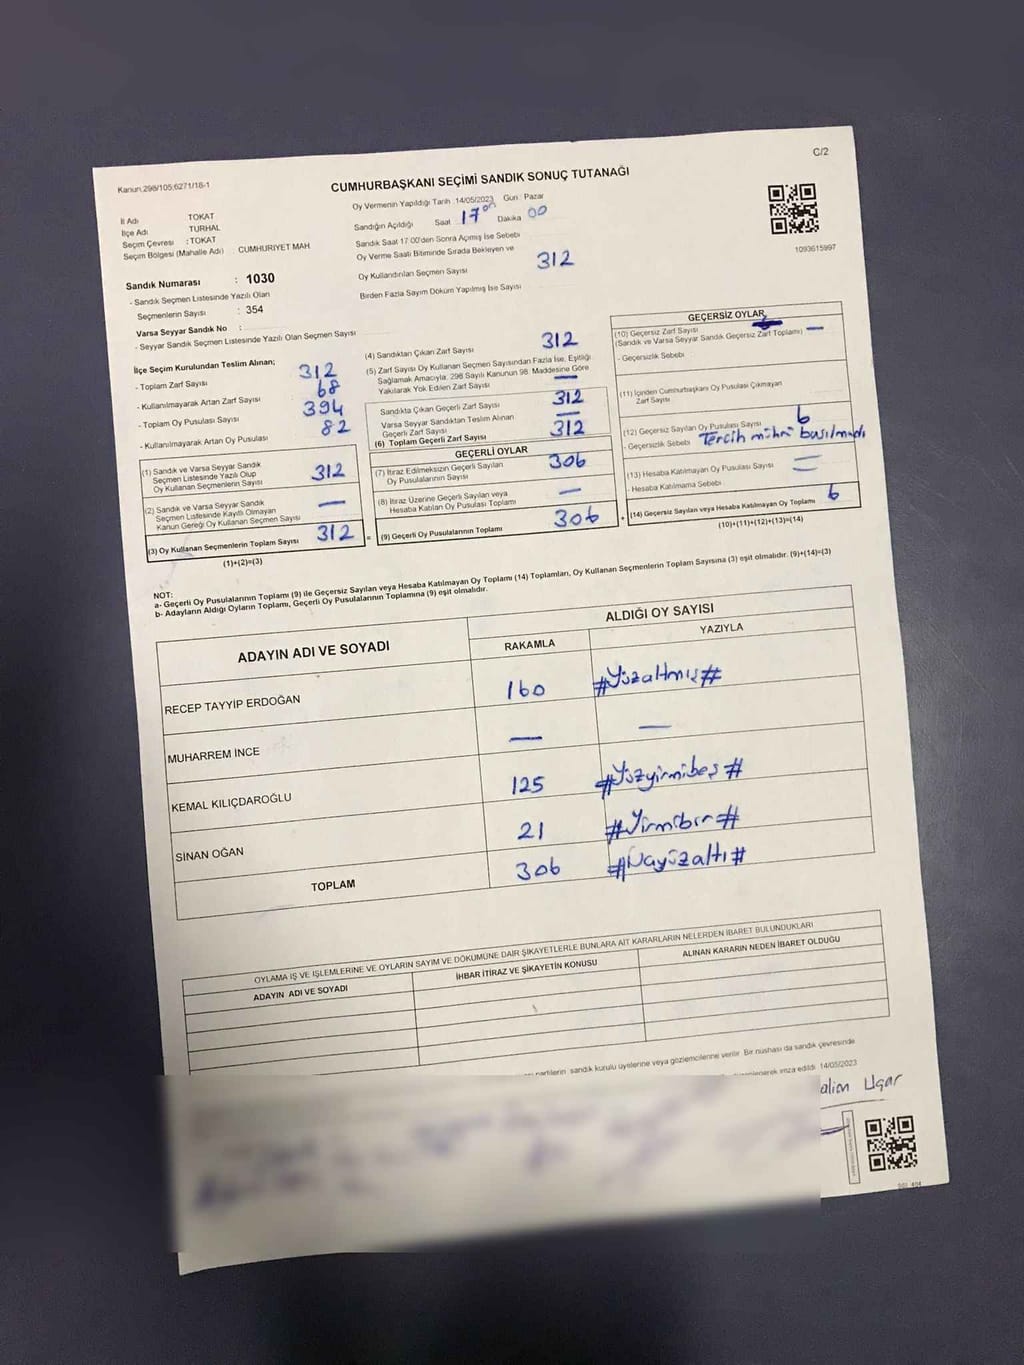 C/2
Kanun:298/105;6271/18-1
CUMHURBAŞKANI SEÇİMİ SANDIK SONUÇ TUTANAĞI
İl Adı TOKAT
İlçe Adı TURHAL
Seçim Çevresi : TOKAT
Seçim Bölgesi (Mahalle Adı) : CUMHURIYET MAH
Oy Vermenin Yapıldığı Tarih 14/05/2023 Gün : Pazar
Sandığın Açıldığı Saat 17 00 Dakika 00
Sandık Saat 17.00'den Sonra Açımış İse Sebebi
Oy Verme Saati Bitiminde Sırada Bekleyen ve
Oy Kullandırılan Seçmen Sayısı 312
Birden Fazla Sayım Döküm Yapılmış İse Sayısı
1093615997
Sandık Numarası : 1030
- Sandık Seçmen Listesinde Yazılı Olan
Seçmenlerin Sayısı : 354
Varsa Seyyar Sandık No :
- Seyyar Sandık Seçmen Listesinde Yazılı Olan Seçmen Sayısı
İlçe Seçim Kurulundan Teslim Alınan;
- Toplam Zarf Sayısı 312
- Kullanılmayarak Artan Zarf Sayısı 68
- Toplam Oy Pusulası Sayısı 394
- Kullanılmayarak Artan Oy Pusulası 82
(1) Sandık ve Varsa Seyyar Sandık
Seçmen Listesinde Yazılı Olup
Oy Kullanan Seçmenlerin Sayısı 312
(2) Sandık ve Varsa Seyyar Sandık
Seçmen Listesinde Kayıtlı Olmayan
Kanun Gereği Oy Kullanan Seçmen Sayısı —
(3) Oy Kullanan Seçmenlerin Toplam Sayısı 312 =
(1)+(2)=(3)
(4) Sandıktan Çıkan Zarf Sayısı 312
(5) Zarf Sayısı Oy Kullanan Seçmen Sayısından Fazla İse, Eşitliği
Sağlamak Amacıyla; 298 Sayılı Kanunun 98. Maddesine Göre
Yakılarak Yok Edilen Zarf Sayısı —
Sandıkta Çıkan Geçerli Zarf Sayısı 312
Varsa Seyyar Sandıktan Teslim Alınan
Geçerli Zarf Sayısı —
(6) Toplam Geçerli Zarf Sayısı 312
GEÇERLİ OYLAR
(7) İtiraz Edilmeksizin Geçerli Sayılan
Oy Pusulalarının Sayısı 306
(8) İtiraz Üzerine Geçerli Sayılan veya
Hesaba Katılan Oy Pusulası Toplamı —
(9) Geçerli Oy Pusulalarının Toplamı 306 +
GEÇERSİZ OYLAR
(10) Geçersiz Zarf Sayısı
(Sandık ve Varsa Seyyar Sandık Geçersiz Zarf Toplamı) —
- Geçersizlik Sebebi
(11) İçinden Cumhurbaşkanı Oy Pusulası Çıkmayan
Zarf Sayısı
(12) Geçersiz Sayılan Oy Pusulası Sayısı 6
- Geçersizlik Sebebi Tercih mührü basılmadı
(13) Hesaba Katılmayan Oy Pusulası Sayısı —
- Hesaba Katılmama Sebebi —
(14) Geçersiz Sayılan veya Hesaba Katılmayan Oy Toplamı 6
(10)+(11)+(12)+(13)=(14)
NOT:
a- Geçerli Oy Pusulalarının Toplamı (9) ile Geçersiz Sayılan veya Hesaba Katılmayan Oy Toplamı (14) Toplamları, Oy Kullanan Seçmenlerin Toplam Sayısına (3) eşit olmalıdır. (9)+(14)=(3)
b- Adayların Aldığı Oyların Toplamı, Geçerli Oy Pusulalarının Toplamına (9) eşit olmalıdır.
ADAYIN ADI VE SOYADI ALDIĞI OY SAYISI
RAKAMLA YAZIYLA
RECEP TAYYİP ERDOĞAN 160 #Yüzaltmış#
MUHARREM İNCE — —
KEMAL KILIÇDAROĞLU 125 #Yüzyirmibeş#
SİNAN OĞAN 21 #Yirmibir#
TOPLAM 306 #Üçyüzaltı#
OYLAMA İŞ VE İŞLEMLERİNE VE OYLARIN SAYIM VE DÖKÜMÜNE DAİR ŞİKAYETLERLE BUNLARA AİT KARARLARIN NELERDEN İBARET BULUNDUKLARI
ADAYIN ADI VE SOYADI İHBAR İTİRAZ VE ŞİKAYETİN KONUSU ALINAN KARARIN NEDEN İBARET OLDUĞU
partilerin sandık kurulu üyelerine veya gözlemcilerine verilir. Bir nüshası da sandık çevresinde
imza edildi. 14/05/2023
alim Uçar